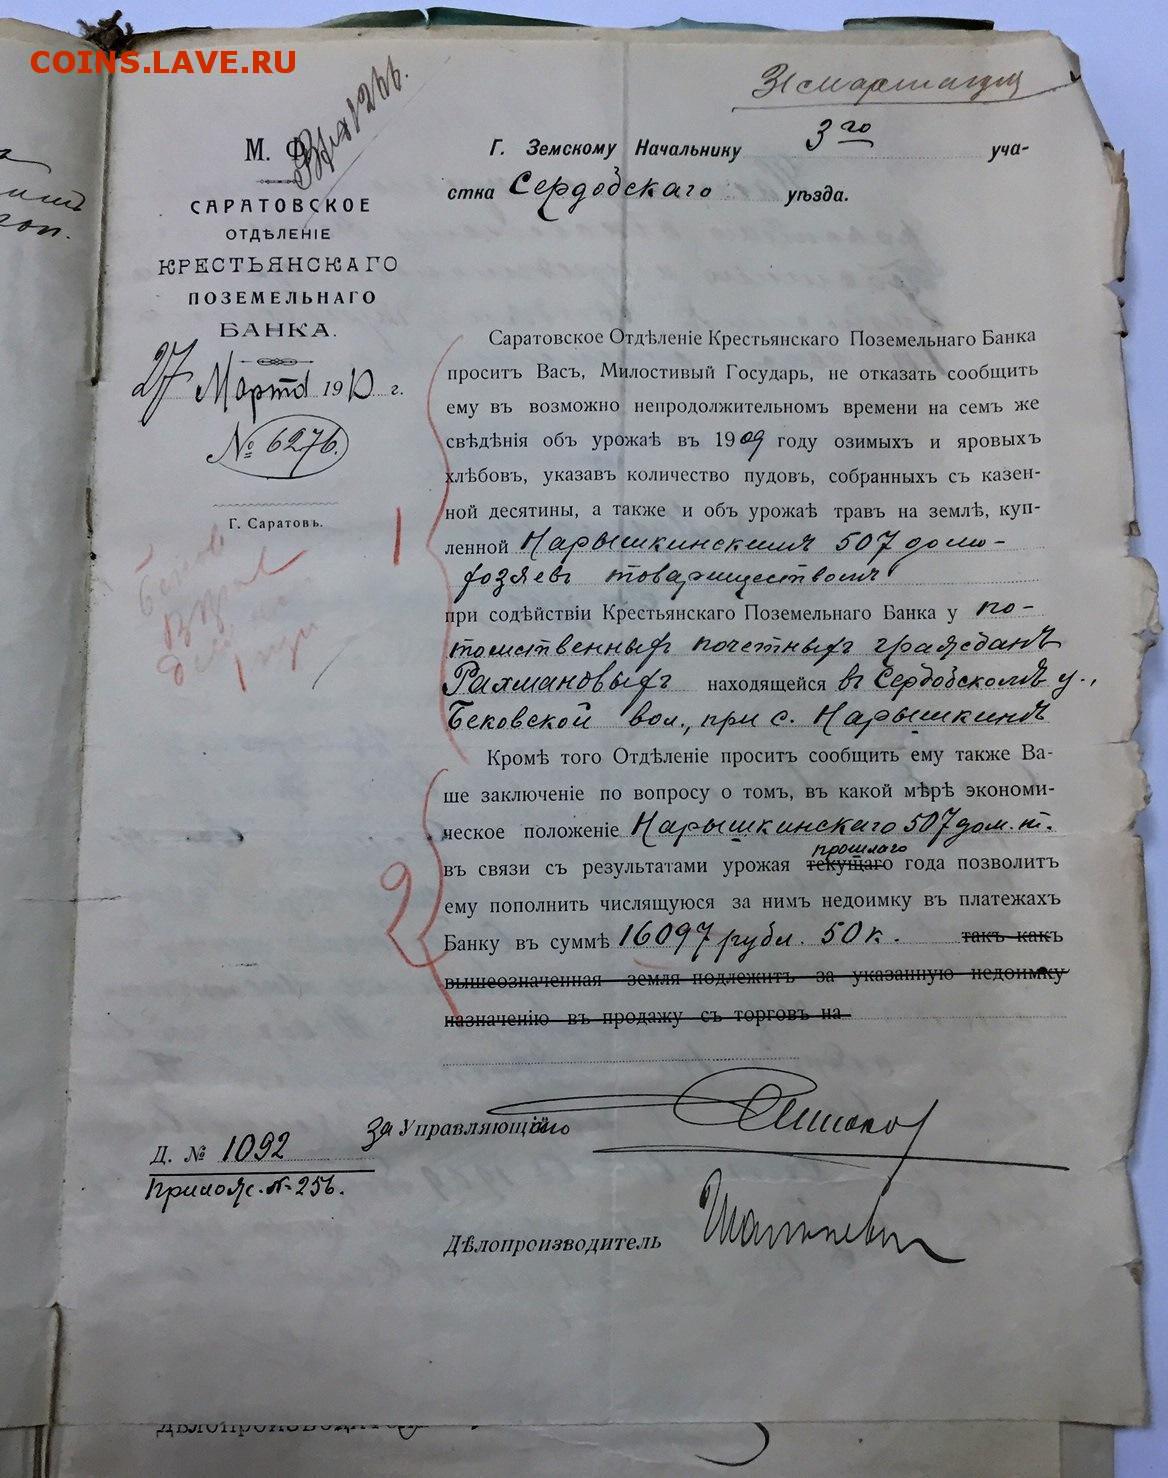 COINS.LAVE.RU
М. Ф.
САРАТОВСКОЕ
ОТДѢЛЕНІЕ
КРЕСТЬЯНСКАГО
ПОЗЕМЕЛЬНАГО
БАНКА.
27 Марта 1910 г.
№ 6276.
Г. Саратовъ.
31 марта
Г. Земскому Начальнику 3го уча-
стка Сердобскаго уѣзда.
Саратовское Отдѣленіе Крестьянскаго Поземельнаго Банка
проситъ Васъ, Милостивый Государь, не отказать сообщить
ему въ возможно непродолжительномъ времени на семъ же
свѣдѣнія объ урожаѣ въ 1909 году озимыхъ и яровыхъ
хлѣбовъ, указавъ количество пудовъ, собранныхъ съ казен-
ной десятины, а также и объ урожаѣ травъ на землѣ, куп-
1
ленной Нарышкинскимъ 507 домо-
хозяевъ товариществомъ
при содѣйствіи Крестьянскаго Поземельнаго Банка у по-
томственныхъ почетныхъ гражданъ
Рахмановыхъ находящейся въ Сердобскомъ у.,
Бековской вол., при с. Нарышкинѣ
Кромѣ того Отдѣленіе проситъ сообщить ему также Ва-
ше заключеніе по вопросу о томъ, въ какой мѣрѣ экономи-
ческое положеніе Нарышкинскаго 507 дом. т.
прошлаго
въ связи съ результатами урожая текущаго года позволитъ
2
ему пополнить числящуюся за нимъ недоимку въ платежахъ
Банку въ суммѣ 16097 рубл. 50 к. такъ какъ
вышеозначенная земля подлежитъ за указанную недоимку
назначенію въ продажу съ торговъ на
За Управляющаго
Д. № 1092
Прилож. № 256.
Дѣлопроизводитель
дѣлопроизводитель